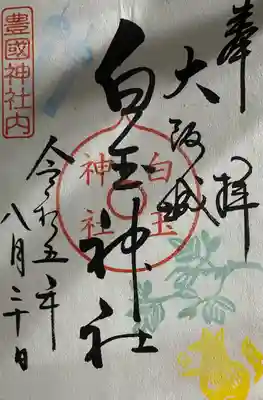 奉拝
大阪城
白玉神社
白玉
神社
豊國神社内
令和五年
八月二十日